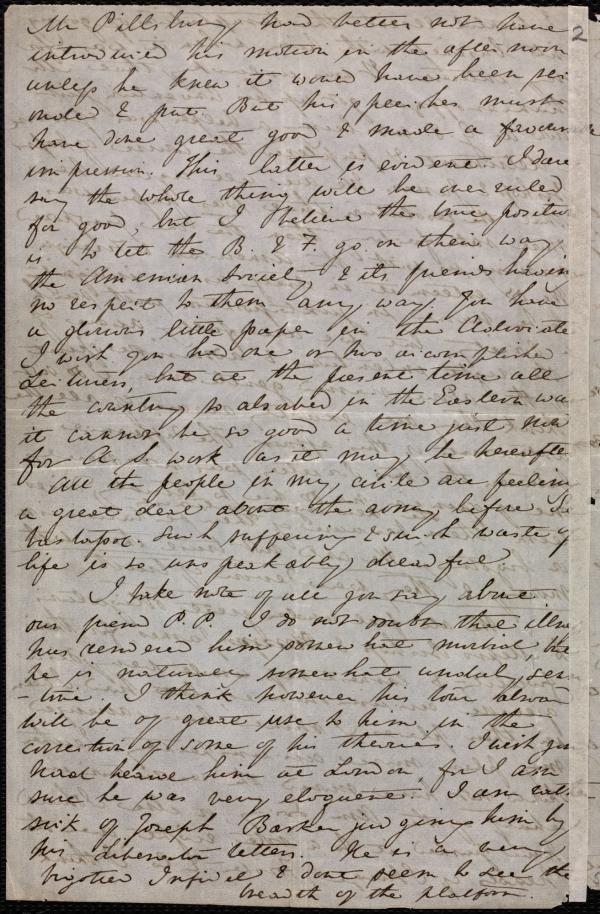 2
Mr Pillsbury had better not have
introduced his motion in the afternoon
unless he knew it would have been sec
onded & put. But his speeches must
have done great good & made a favour
impression. This latter is evident. I dare
say the whole thing will be over ruled
for good, but I believe the true positio
is to let the B. & F. go on their way
the American Society, & its friends having
no respect to them any way. You have
a glorious little paper in the Advocate
I wish you had one or two accomplished
Lecturers, but at the present time all
the country so absorbed in the Eastern wa
it cannot be so good a time just now
for A. S. work as it may be hereafte
All the people in my circle are feeling
a great deal about the army before Se
bastopol. Such suffering & such waste of
life is so unspeakably dreadful
I take note of all you say about
our friend P. P. I do not doubt that illne
has rendered him somewhat morbid, tho
he is naturally somewhat unduly sen
-tive. I think however his tour abroad
will be of great use to him, in the
correction of some of his theories. I wish you
had heard him at London, for I am
sure he was very eloquent. I am rath
sick of Joseph Barker judging him by
his Liberator letters. He is a very
bigoted Infidel & dont seem to see the
breadth of the platform.